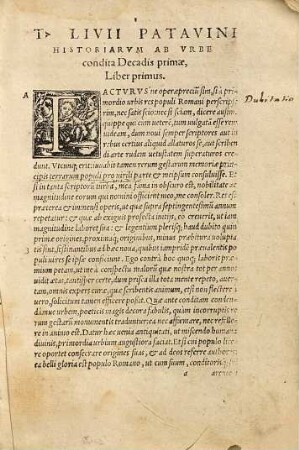 T. LIVII PATAVINI
HISTORIARVM AB VRBE
condita Decadis primæ,
Liber primus.
A
FACTVRVS ne operæpreciũ sim, si à
primordio vrbis res populi Romani perscripse-
rim, nec satis scio: nec si sciam, dicere ausim:
quippe qui cum veterē, tum vulgatā esse rem
videam, dum noui semper scriptores aut in
rebus certius aliquid allaturos se, aut scriben
di arte rudem vetustatem superaturos cre-
dunt. Vtcunq; erit: iuuabit tamen rerum gestarum memoriæ prin
cipis terrarum populi pro virili parte & meipsum consuluisse. Et
si in tanta scriptorū turba, mea fama in obscuro est, nobilitate ac
magnitudine eorum qui nomini officient meo, me consoler. Res est
præterea & immensi operis, vt quæ supra septingentesimū annum
repetatur: & quæ ab exiguis profecta initijs, eò creuerit, vt iam
magnitudine laboret sua: & legentium plerisq; haud dubito quin
primæ origines, proximaq; originibus, minus præbitura volupta
tis sint, festinantibus ad hæc noua, quibus iam pridē præualentis po
puli vires se ipsæ conficiunt. Ego contrà hoc quoq; laboris præ-
mium petam, vt me à conspectu malorū quæ nostra tot per annos
vidit ætas, tantisper certè, dum prisca illa tota mente repeto, auer
tam, omnis expers curæ, quæ scribentis animum, etsi non flectere à
vero, solicitum tamen efficere possit. Quæ ante conditam conden-
dámue vrbem, poëticis magis decora fabulis, quàm incorruptis re-
rum gestarū monumentis traduntur: ea nec affirmare, nec refelle-
re in animo est. Datur hæc venia antiquitati, vt miscendo humana
diuinis, primordia vrbium augustiora faciat. Et si cui populo lice
re oportet consecrare origines suas, & ad deos referre authores:
ea belli gloria est populo Romano, vt cum suum, conditorisq;
a
Dubitatio